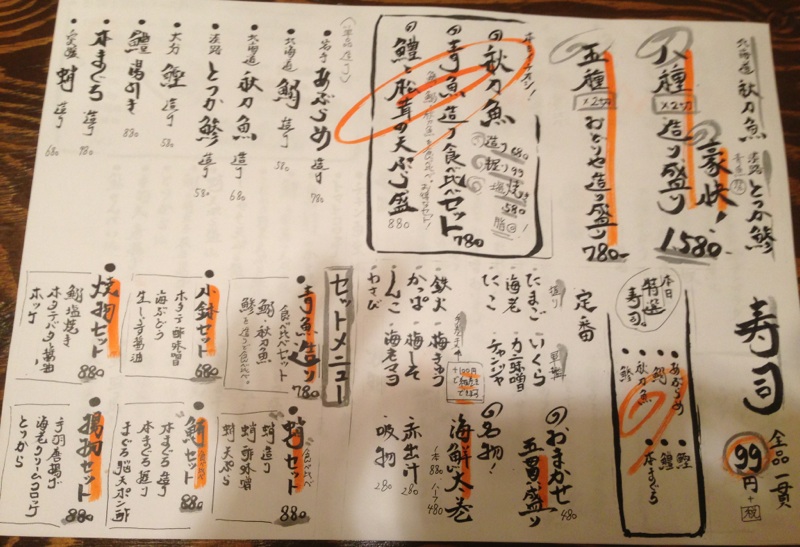 北海道 秋刀魚
淡路 とつか鯵
八種 ×2切 造り盛り
豪快!
1580-
五種 ×2切 おたりや造り盛り 780-
本日イチオシ!
秋刀魚
造り 680
握り 99
塩焼き 580
青魚造り食べ比べセット 780
鱧と松茸の天ぷら盛 880
(単品造り)
岩手 あぶらめ 造り 780
北海道 鰯 造り 580
北海道 秋刀魚 造り 680
淡路 とつか鯵 造り 580
大分 鰹 造り 580
鱧 湯引き 880
本まぐろ 造り 980
蛸 造り 680
寿司 全品一貫 99円+税
本日特選寿司。
あぶらめ
鰯
秋刀魚
鯵
鰹
鱧
蛸
本まぐろ
定番
握り
たまご
海老
たこ
軍艦
いくら
カニ味噌
チャンジャ
鉄火
かっぱ
しんこ
わさび
梅きゅう
梅しそ
海老マヨ
おまかせ五貫盛り 480
名物!海鮮大巻
1本 880 ハーフ 480
赤出汁 280
吸物 280
セットメニュー
青魚造り 食べ比べセット 780
鰯
秋刀魚
鯵
小鉢セット 680
ホタテ酢味噌
海ぶどう
生しらす醤油
焼物セット 880
鰯塩焼き
ホタテバター醤油
ホッケ
蛸セット 食べ比べ 880
蛸造り
蛸酢味噌
蛸天ぷら
鮪セット 食べ比べ 880
本まぐろ造り
まぐろ脳天ポン酢
揚物セット 880
手羽唐揚げ
海老クリームコロッケ
とりから